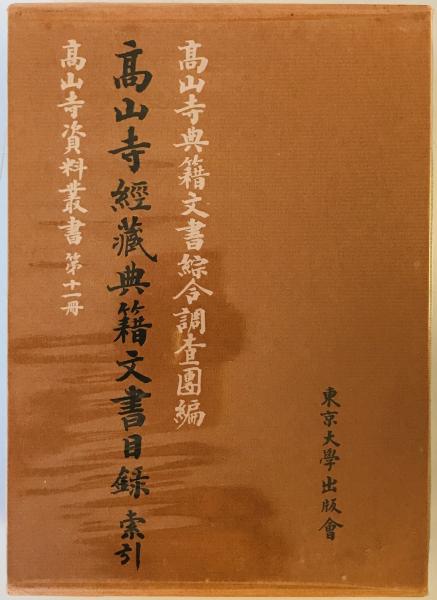 東京大學出版會
高山寺典籍文書綜合調査團編
高山寺經藏典籍文書目錄 索引
高山寺資料叢書 第十一冊